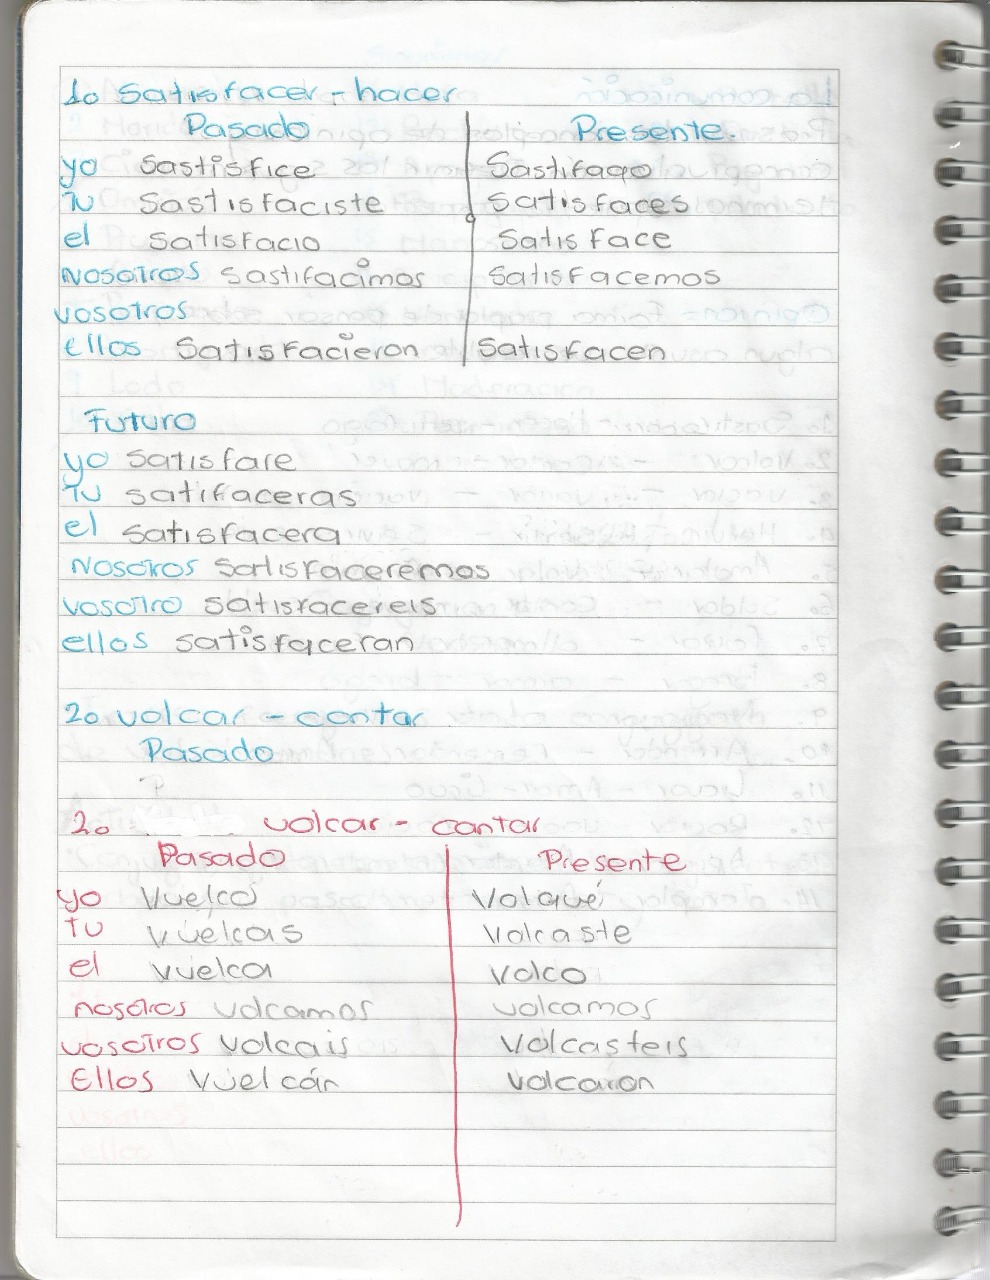 1o Satisfacer - hacer
Pasado Presente.
yo Sastisfice Sastifago
Tu Sastisfaciste Satisfaces
el Satisfacio Satisface
Nosotros Sastifacimos Satisfacemos
vosotros
ellos Satisfacieron Satisfacen
Futuro
yo Satisfare
Tu satifaceras
el satisfacera
Nosotros Satisfaceremos
vosotro satisfacereis
ellos satisfaceran
2o volcar - contar
Pasado
P
2o volcar - contar
Pasado Presente
yo Vuelco Volqué
tu vuelcas Volcaste
el vuelca Volco
nosotros volcamos volcamos
vosotros volcais Volcasteis
Ellos Vuelcán volcaron